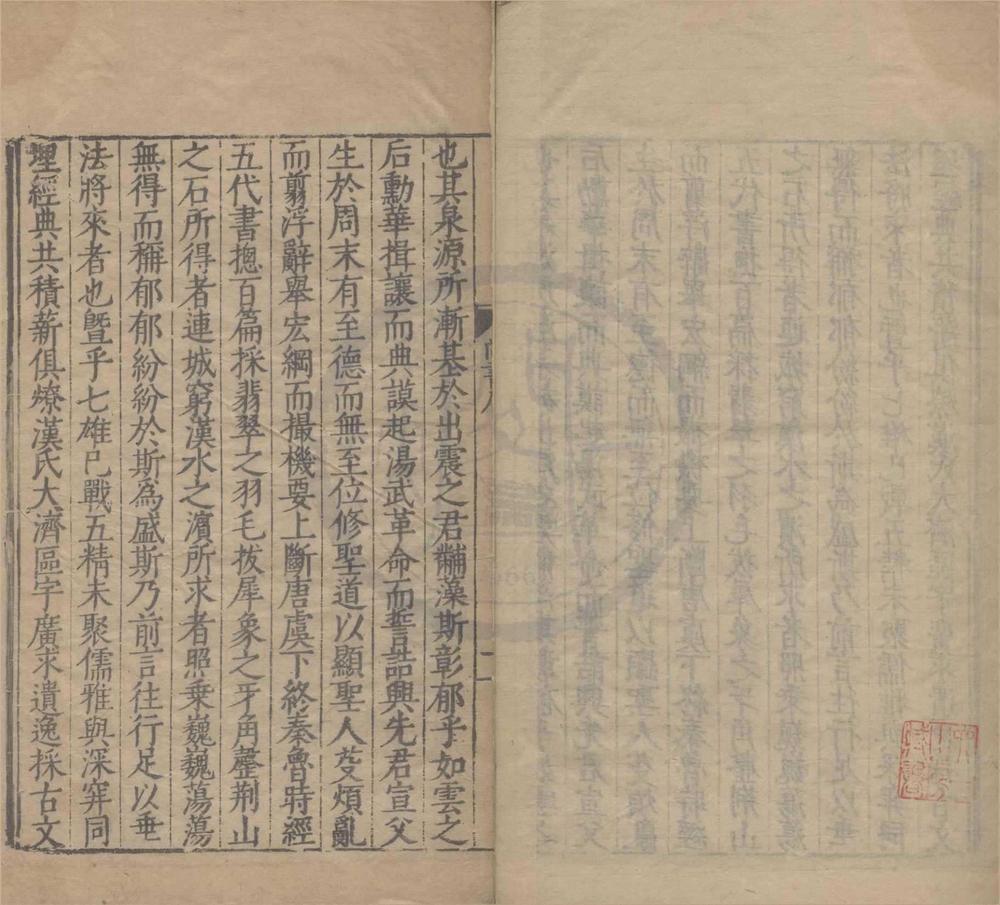 也其泉源所漸基於出震之君黼藻斯彰郁乎如雲之
后勳華揖讓而典謨起湯武革命而誓誥興先君宣父
生於周末有至德而無至位修聖道以顯聖人芟煩亂
而翦浮辭舉宏綱而撮機要上斷唐虞下終秦魯時經
五代書揔百篇採翡翠之羽毛拔犀象之牙角罄荆山
之石所得者連城窮漢水之濱所求者照乗巍巍蕩蕩
無得而稱郁郁紛紛於斯為盛斯乃前言往行足以垂
法將來者也曁乎七雄已戰五精未聚儒雅與深穽同
埋經典共積薪俱燎漢氏大濟區宇廣求遺逸採古文